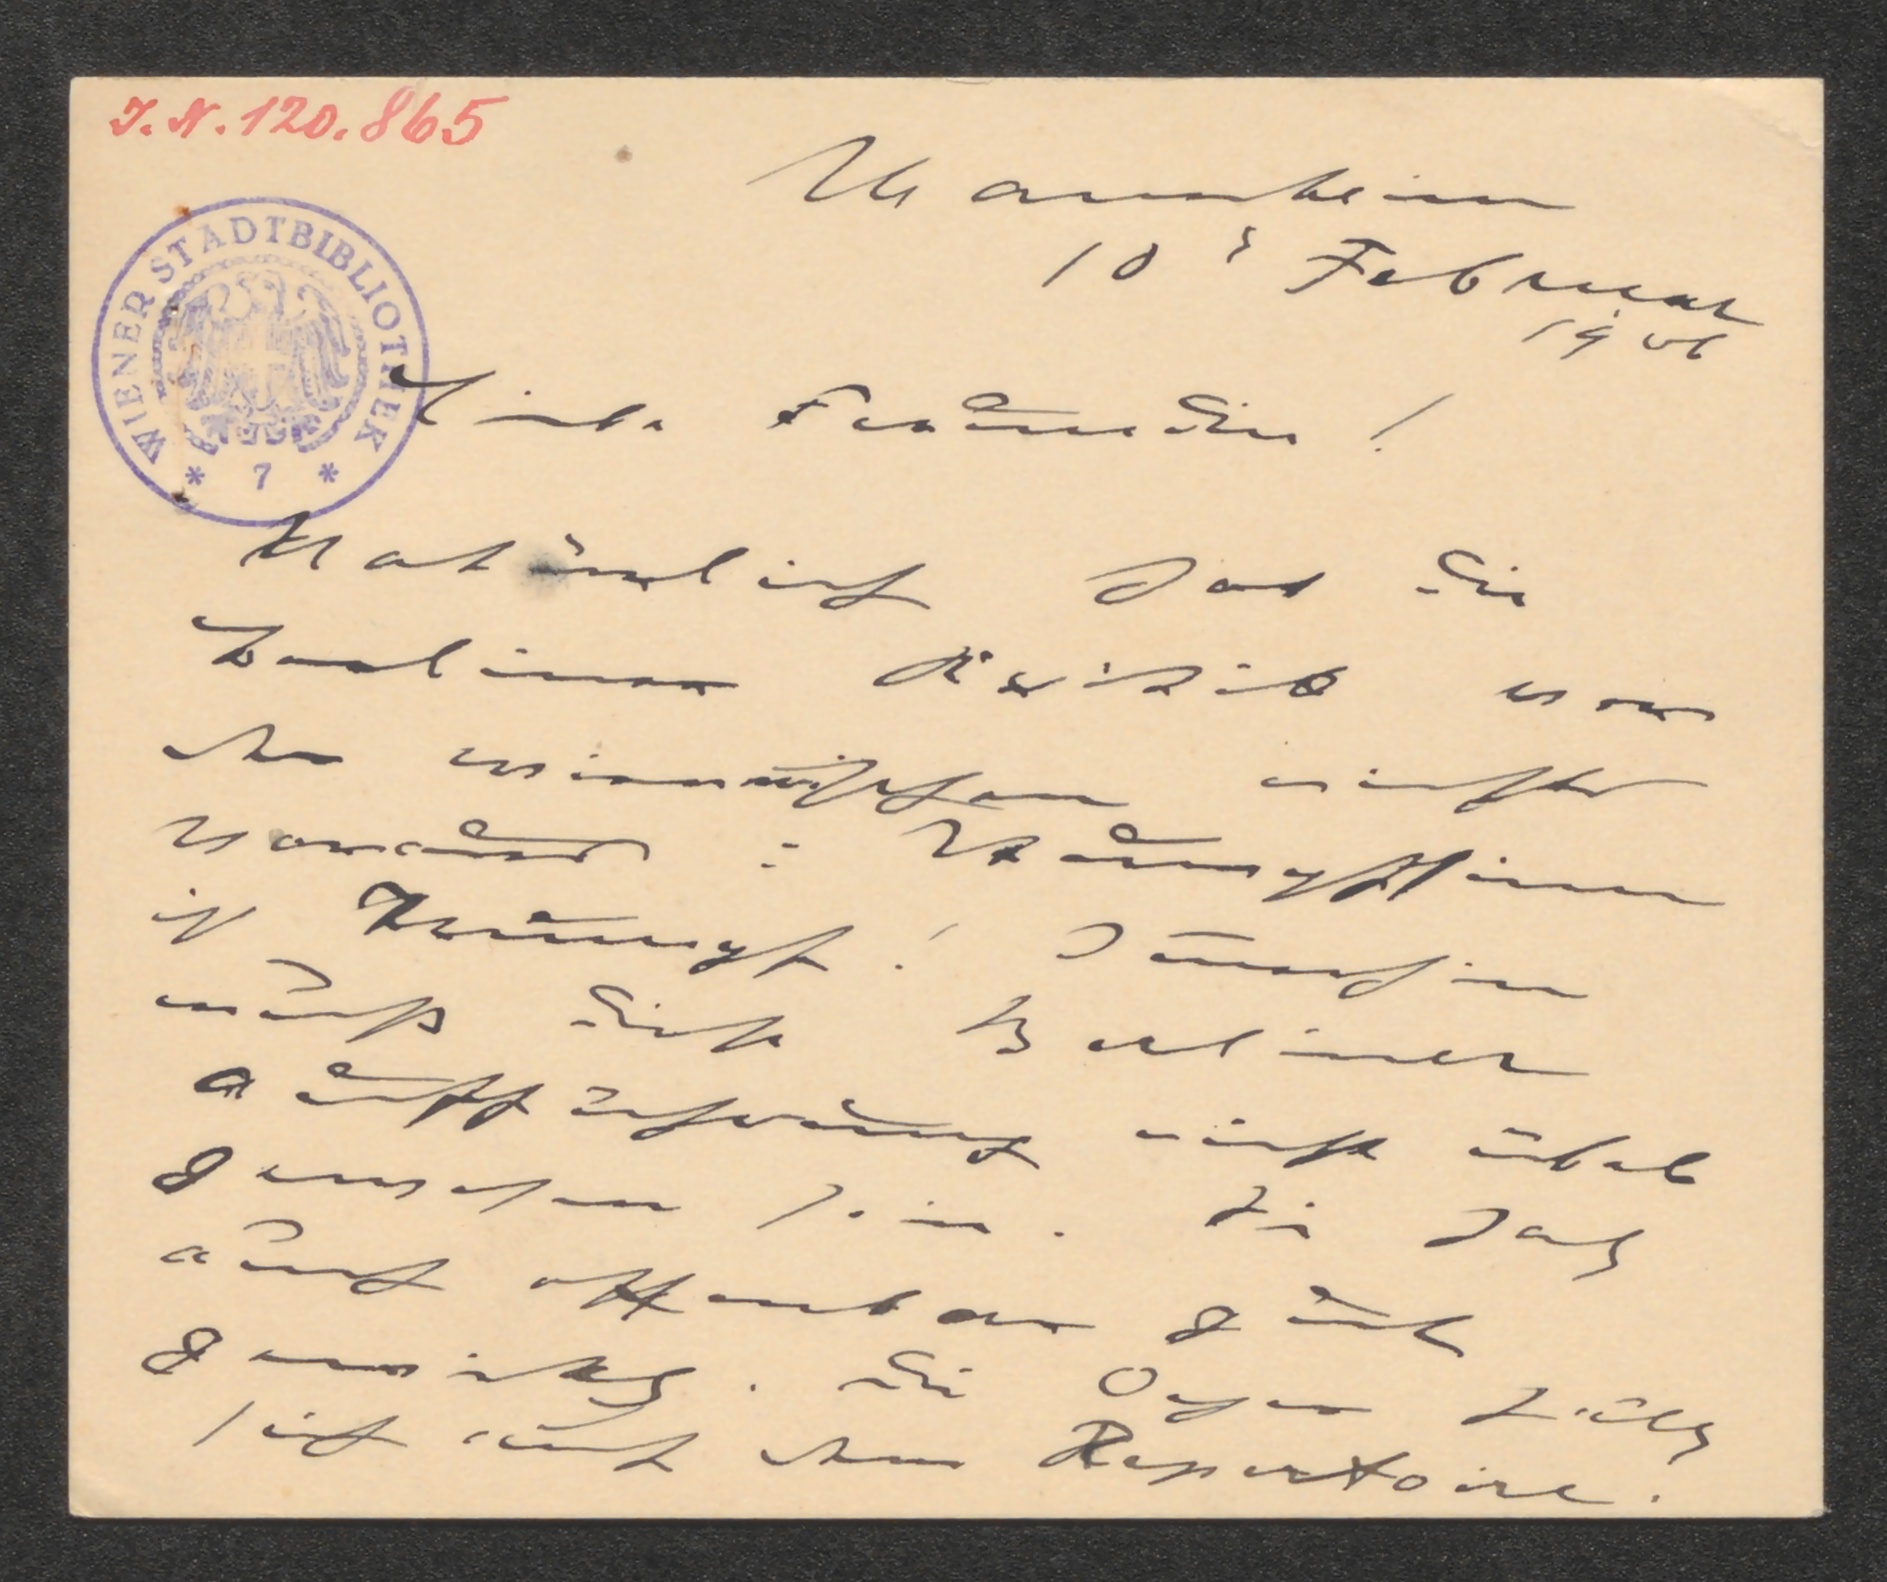 J.N. 120.865
WIENER STADTBIBLIOTHEK
* 7 *
Mannheim
10. Februar
1906
Liebe Freundin!
Natürlich hat die
Berliner Kritik von
der wienerischen nichts
voraus: Stumpfsinn
ist Trumpf! Immerhin
muß diese Berliner
Aufführung nicht übel
gewesen sein. Sie hat
auch offenbar gut
gewirkt. Die Oper hält
sich auf dem Repertoire.